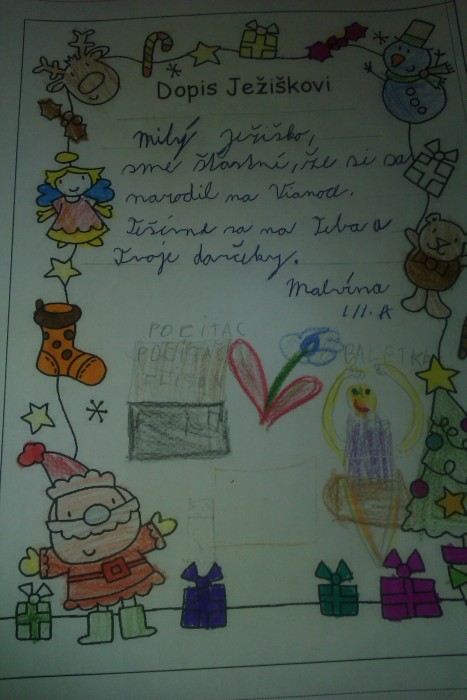 Dopis Ježiškovi
Milý Ježiško,
sme šťastní, že si sa
narodil na Vianoce.
Tešíme sa na Teba a
Tvoje darčeky.
Malvína
III. A
POČITAČ
BALETKU